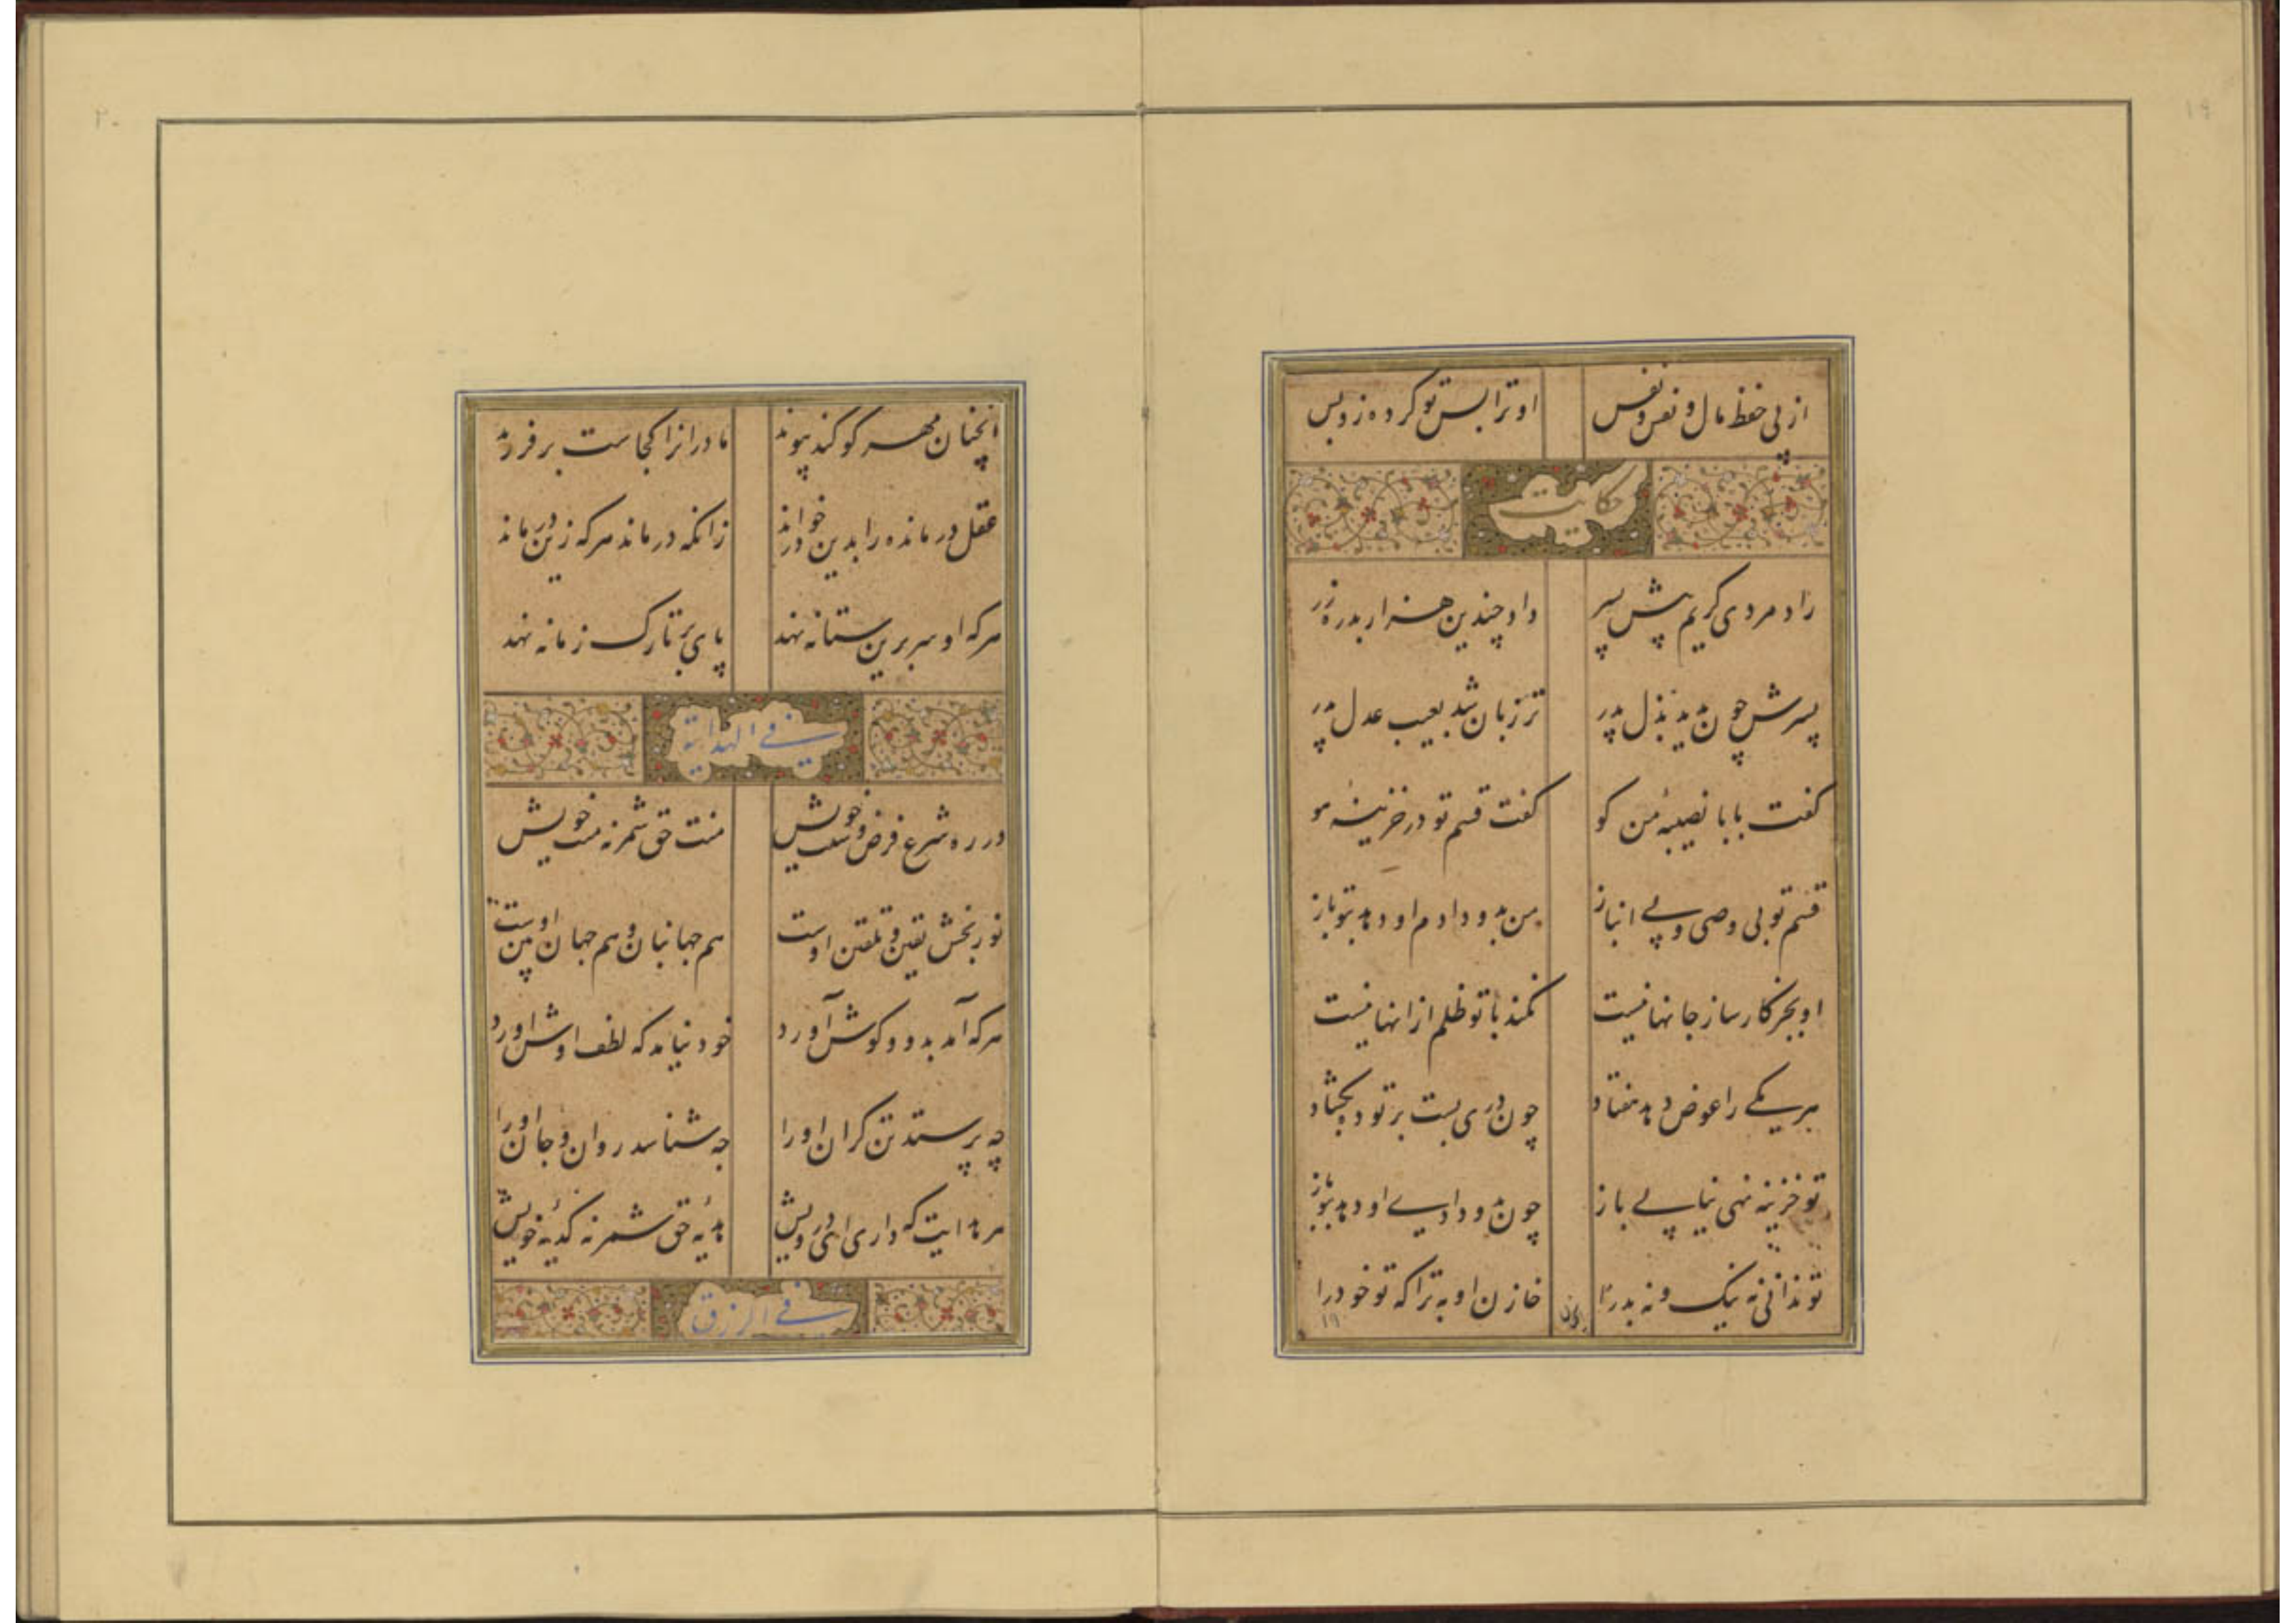 ۱۹
از پی حفظ مال و نفس و نفس او ترا بس تو کرده زو بس
حکایت
زاد مردی کریم پیش پسر داد چندین هزار بدره زر
پسرش چون بدید بذل پدر تر زبان شد بعیب عدل پدر
گفت بابا نصیبه من کو گفت قسم تو در خزینه هو
قسم تو بی وصی و بی انباز من بدو دادم او دهد بتو باز
او بجز کار ساز جانها نیست نکند با تو ظلم ازانها نیست
هر یکی را عوض دهد هفتاد چون دری بست بر تو ده بگشاد
تو خزینه نهی نیابی باز چون بدو دادی او دهد بتو باز
تو ندانی نه نیک و نه بد را خازن او به ترا که تو خود را
۱۹
۲۰
آنچنان مهر کو کند پیوند مادرانرا کجاست بر فرزند
عقل درمانده را بدین در خواند زانکه درماند هر که زین در ماند
هر که او سر برین ستانه نهد پای بر تارک زمانه نهد
فی الهدایة
در ره شرع و فرض و سنت خویش منت حق شمر نه منت خویش
نور بخش یقین و تلقین اوست هم جهانبان و هم جهان بین اوست
هر که آمد بدو و گوش آورد خود نیامد که لطف اوش آورد
چه پرستد تن گران او را چه شناسد روان و جان او را
هر هدایت که داری ای درویش هدیه حق شمر نه کدیه خویش
فی الرزق